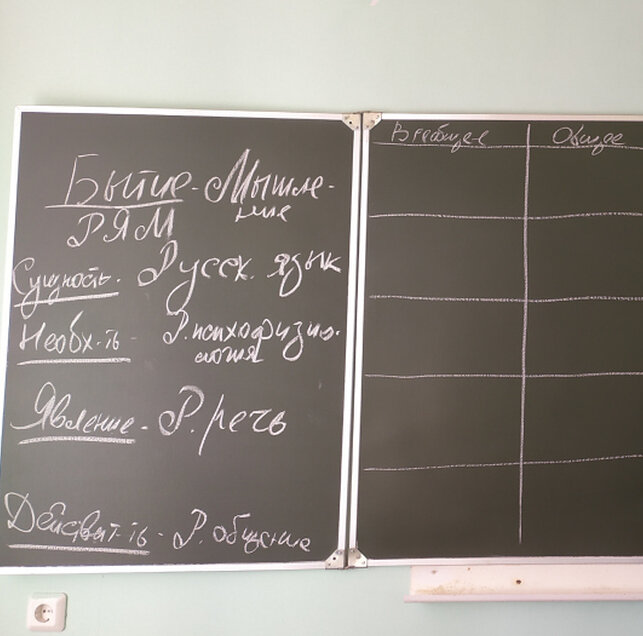 Бытие - Мышле-
ние
РЯМ
Сущность - Русск. язык
Необх-ть - Р. психофизио-
логия
Явление - Р. речь
Действит-ть - Р. общение
Всеобщее Общее